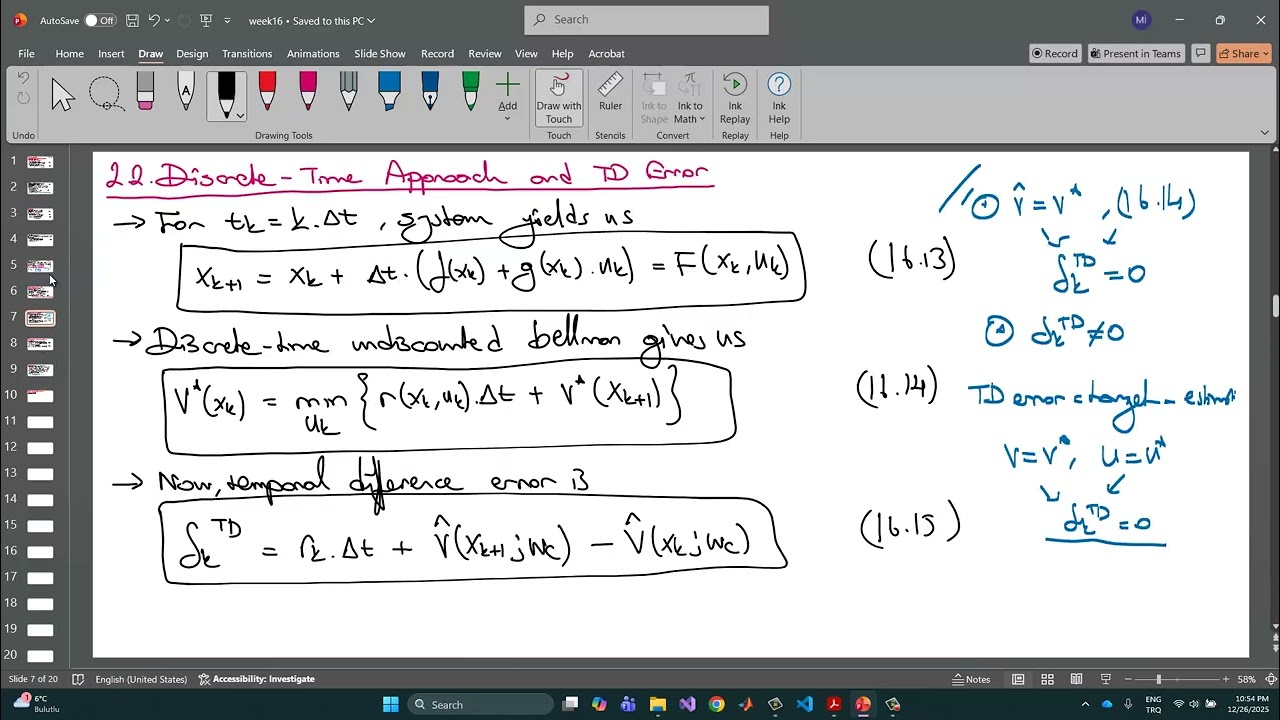 AutoSave Off week16 • Saved to this PC Search Mİ
File Home Insert Draw Design Transitions Animations Slide Show Record Review View Help Acrobat Record Present in Teams Share
Add Draw with Touch Ruler Ink to Shape Ink to Math Ink Replay Ink Help
Undo Drawing Tools Touch Stencils Convert Replay Help
1
2
3
4
5
6
7
8
9
10
11
12
13
14
15
16
17
18
19
20
2.2. Discrete-Time Approach and TD Error
→ For t_k = k.Δt, system yields us
x_{k+1} = x_k + Δt.(f(x_k) + g(x_k).u_k) = F(x_k, u_k) (16.13)
→ Discrete-time undiscounted bellman gives us
V*(x_k) = min_{u_k} {r(x_k, u_k).Δt + V*(x_{k+1})} (16.14)
→ Now, temporal difference error is
δ_k^{TD} = r_k.Δt + V̂(x_{k+1}; w_c) − V̂(x_k; w_c) (16.15)
V̂ = V*, (16.14)
δ_k^{TD} = 0
δ_k^{TD} ≠ 0
TD error = target - estim
V = V*, u = u*
δ_k^{TD} = 0
Slide 7 of 20 English (United States) Accessibility: Investigate Notes 58%
1 6°C
Bulutlu
Search
ENG
TRQ
10:54 PM
12/26/2025